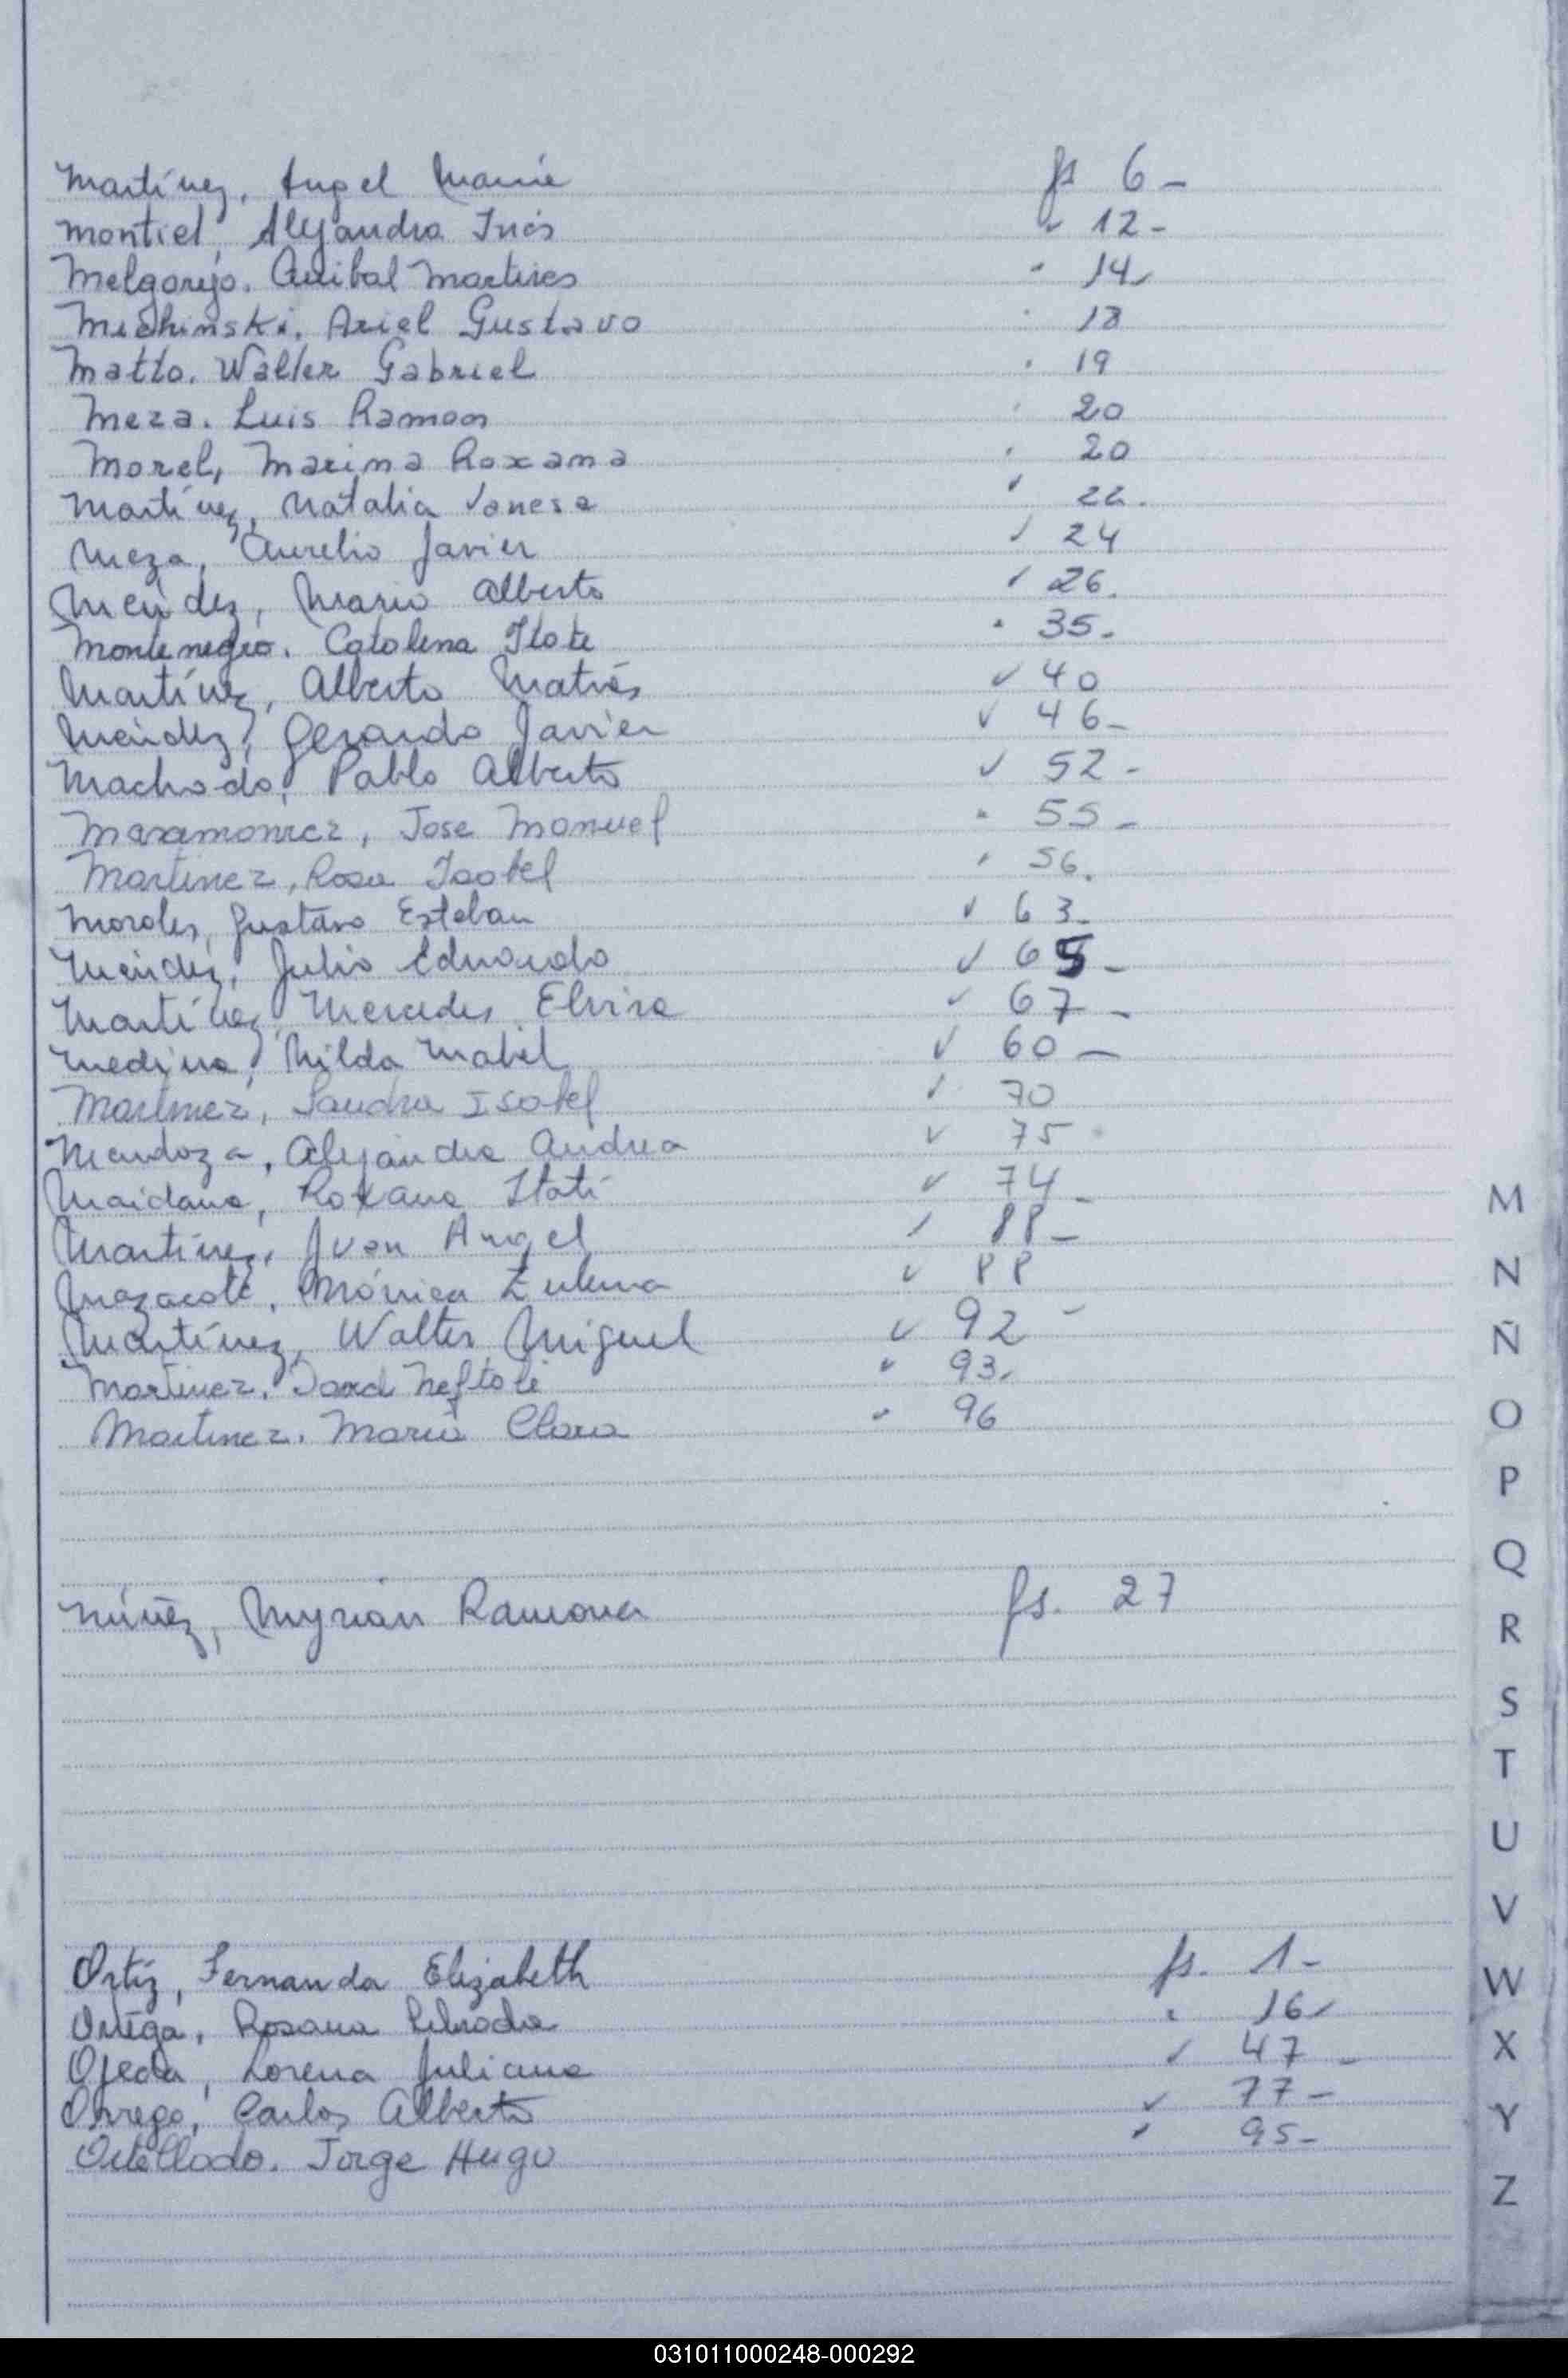 Martínez, Angel María fs 6-
Montiel, Alejandra Inés " 12-
Melgarejo. Anibal Martires " 14-
Michinski. Ariel Gustavo " 18
Matto. Walter Gabriel " 19
Meza. Luis Ramon " 20
Morel, Marina Roxana " 20
Martínez, Natalia Vanesa " 22.
Meza, Aurelio Javier " 24
Méndez, Mario Alberto " 26.
Montenegro. Catalina Itati " 35.
Martínez, Alberto Matías " 40
Méndez, Gerardo Javier " 46-
Machado, Pablo Alberto " 52-
Maramonicz, Jose Manuel " 55-
Martinez, Rosa Isabel " 56.
Morales, Gustavo Esteban " 63-
Méndez, Julio Eduardo " 65-
Martínez, Mercedes Elvira " 67-
Medina, Nilda Mabel " 60-
Martinez, Sandra Isabel " 70
Mendoza, Alejandra Andrea " 75
Maidana, Roxana Itatí " 74-
Martínez, Juan Angel " 88-
Mónica Zulema " 88
Martínez, Walter Miguel " 92-
Martinez. Neftali " 93.
Martinez. María Clara " 96
Núñez, Myrian Ramona fs. 27
Ortíz, Fernanda Elizabeth fs. 1-
Ortega, Rosana " 16-
Ojeda, Lorena Juliana " 47-
Orrego, Carlos Alberto " 77-
Ortellado. Jorge Hugo " 95-
M
N
Ñ
O
P
Q
R
S
T
U
V
W
X
Y
Z
031011000248-000292